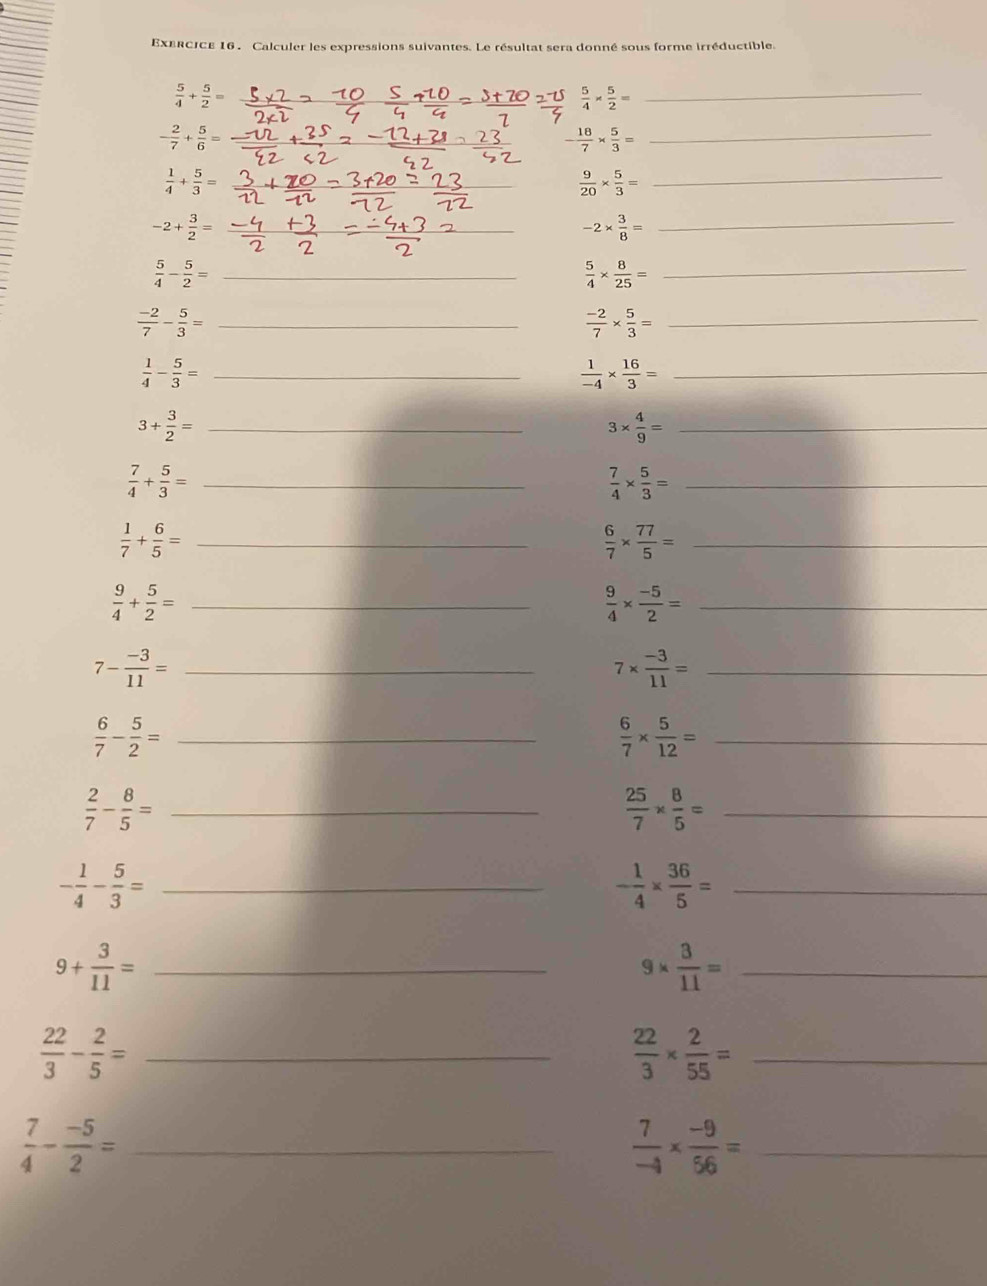 EXERCICE 16. Calculer les expressions suivantes. Le résultat sera donné sous forme irréductible.
5/4 + 5/2 = 5×2/2×2 = 10/4 5/4 + 10/4 = 5+10/ = 15/4 5/4 × 5/2 =
-2/7 + 5/6 = -12/42 + 35/42 = -12+35/42 = 23/42 -18/7 × 5/3 =
1/4 + 5/3 = 3/12 + 20/12 = 3+20/12 = 23/12 9/20 × 5/3 =
-2 + 3/2 = -4/2 +3/2 = -4+3/2 = -2 × 3/8 =
5/4 - 5/2 = 5/4 × 8/25 =
-2/7 - 5/3 = -2/7 × 5/3 =
1/4 - 5/3 = 1/-4 × 16/3 =
3 + 3/2 = 3 × 4/9 =
7/4 + 5/3 = 7/4 × 5/3 =
1/7 + 6/5 = 6/7 × 77/5 =
9/4 + 5/2 = 9/4 × -5/2 =
7 - -3/11 = 7 × -3/11 =
6/7 - 5/2 = 6/7 × 5/12 =
2/7 - 8/5 = 25/7 × 8/5 =
-1/4 - 5/3 = -1/4 × 36/5 =
9 + 3/11 = 9 × 3/11 =
22/3 - 2/5 = 22/3 × 2/55 =
7/4 - -5/2 = 7/-4 × -9/56 =